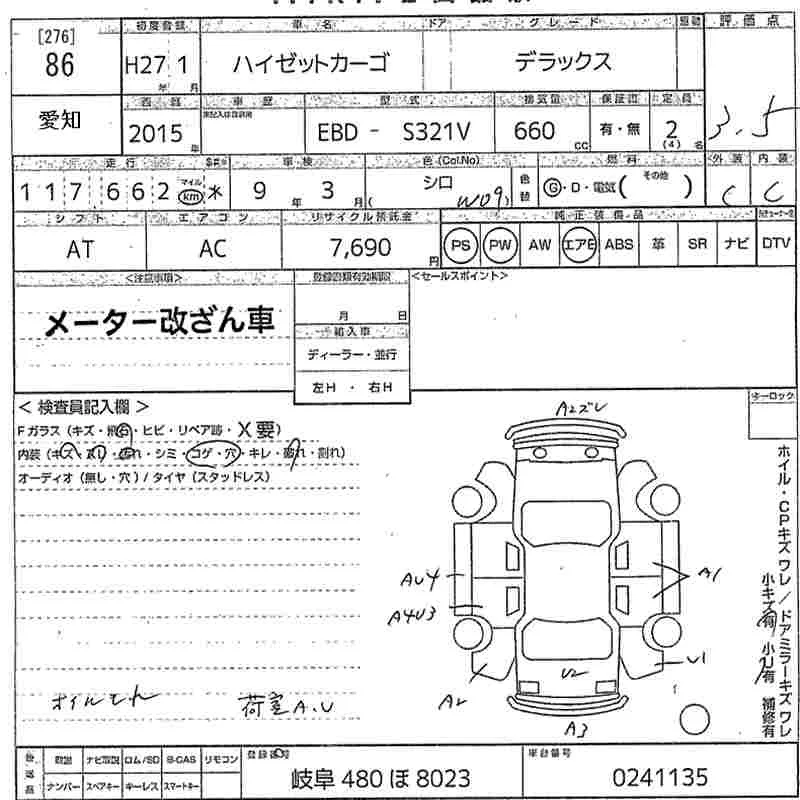 [276]
86
初度登録 車名 ドア グレード 駆動 評価点
H27 1 ハイゼットカーゴ デラックス
年 月
愛知
車歴 型式 排気量 保証書 定員
2015 EBD - S321V 660 有・無 2 3.5
年 CC (4) 名
走行 車検 色(Col.No) 燃料 外装 内装
117662 マイル km 9 年 3 月 シロ ( W09 ) 色替 G・D・電気( その他 ) C C
シフト エアコン リサイクル預託金 純正装備品
AT AC 7,690 円 PS PW AW エアB ABS 革 SR ナビ DTV
<注意事項> 登録書類有効期限 <セールスポイント>
メーター改ざん車
月 日
輸入車
ディーラー・並行
左H ・ 右H
< 検査員記入欄 > キーロック
Fガラス(キズ・飛石・ヒビ・リペア跡・X要)
内装(キズ・汚れ・シミ・コゲ・穴・キレ・割れ)
オーディオ(無し・穴)/タイヤ(スタッドレス)
A2ズレ
AU4
A4U3
A1
A2
U2
U1
A3
ホイル・CPキズワレ/ドアミラーキズワレ
小キズ有 小U有 補修有
オイルもれ 荷室A.U
取説 ナビ取説 ロム/SD B-CAS リモコン 登録番号 車台番号
ナンバー スペアキー キーレス スマートキー 岐阜 480 ほ 8023 0241135